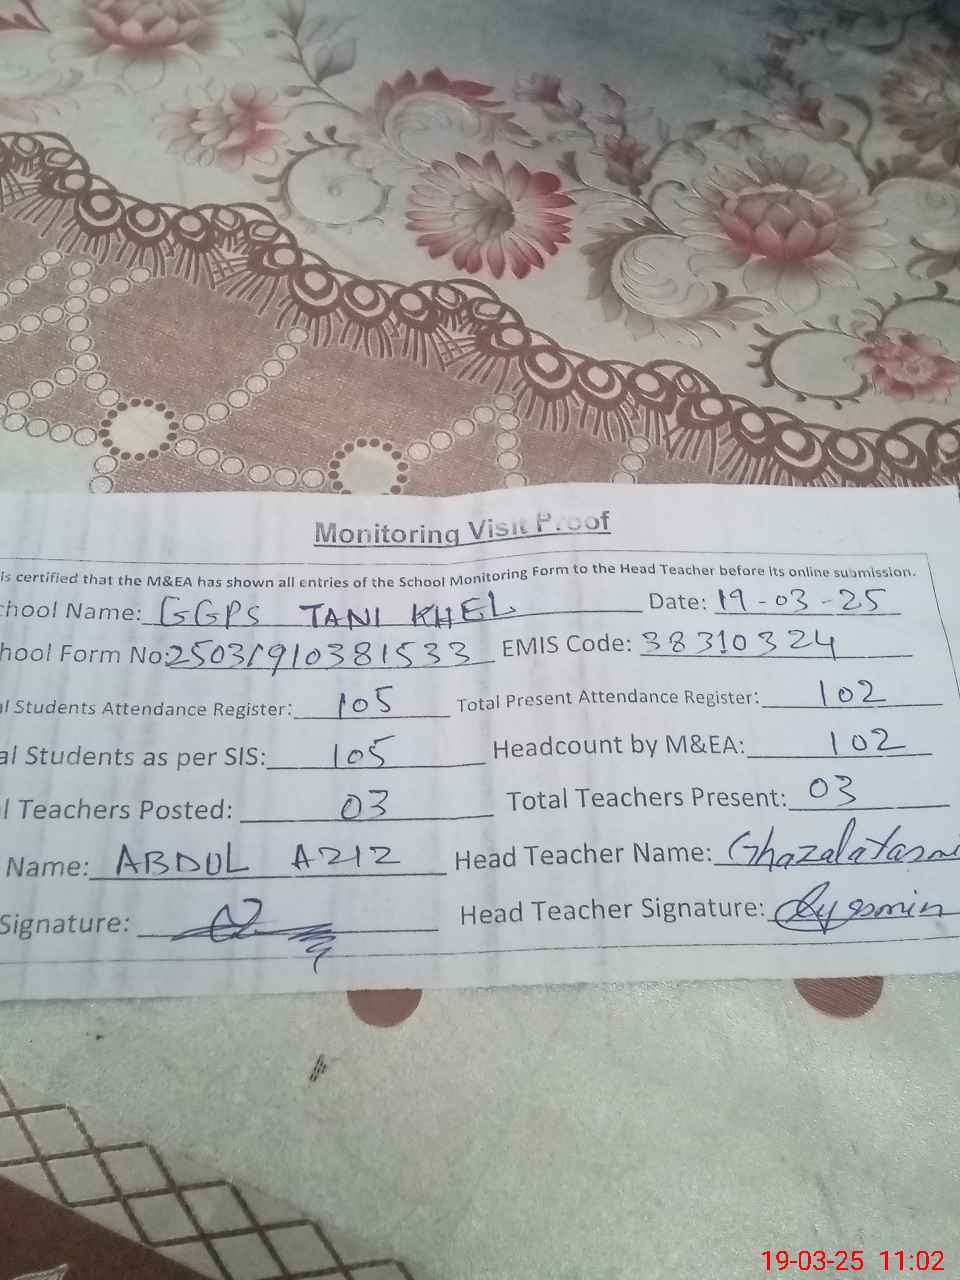 Monitoring Visit Proof
is certified that the M&EA has shown all entries of the School Monitoring Form to the Head Teacher before its online submission.
chool Name: GGPS TANI KHEL Date: 19-03-25
hool Form No: 25031910381533 EMIS Code: 38310324
al Students Attendance Register: 105 Total Present Attendance Register: 102
al Students as per SIS: 105 Headcount by M&EA: 102
l Teachers Posted: 03 Total Teachers Present: 03
Name: ABDUL AZIZ Head Teacher Name: Ghazala
Signature: Head Teacher Signature:
19-03-25 11:02